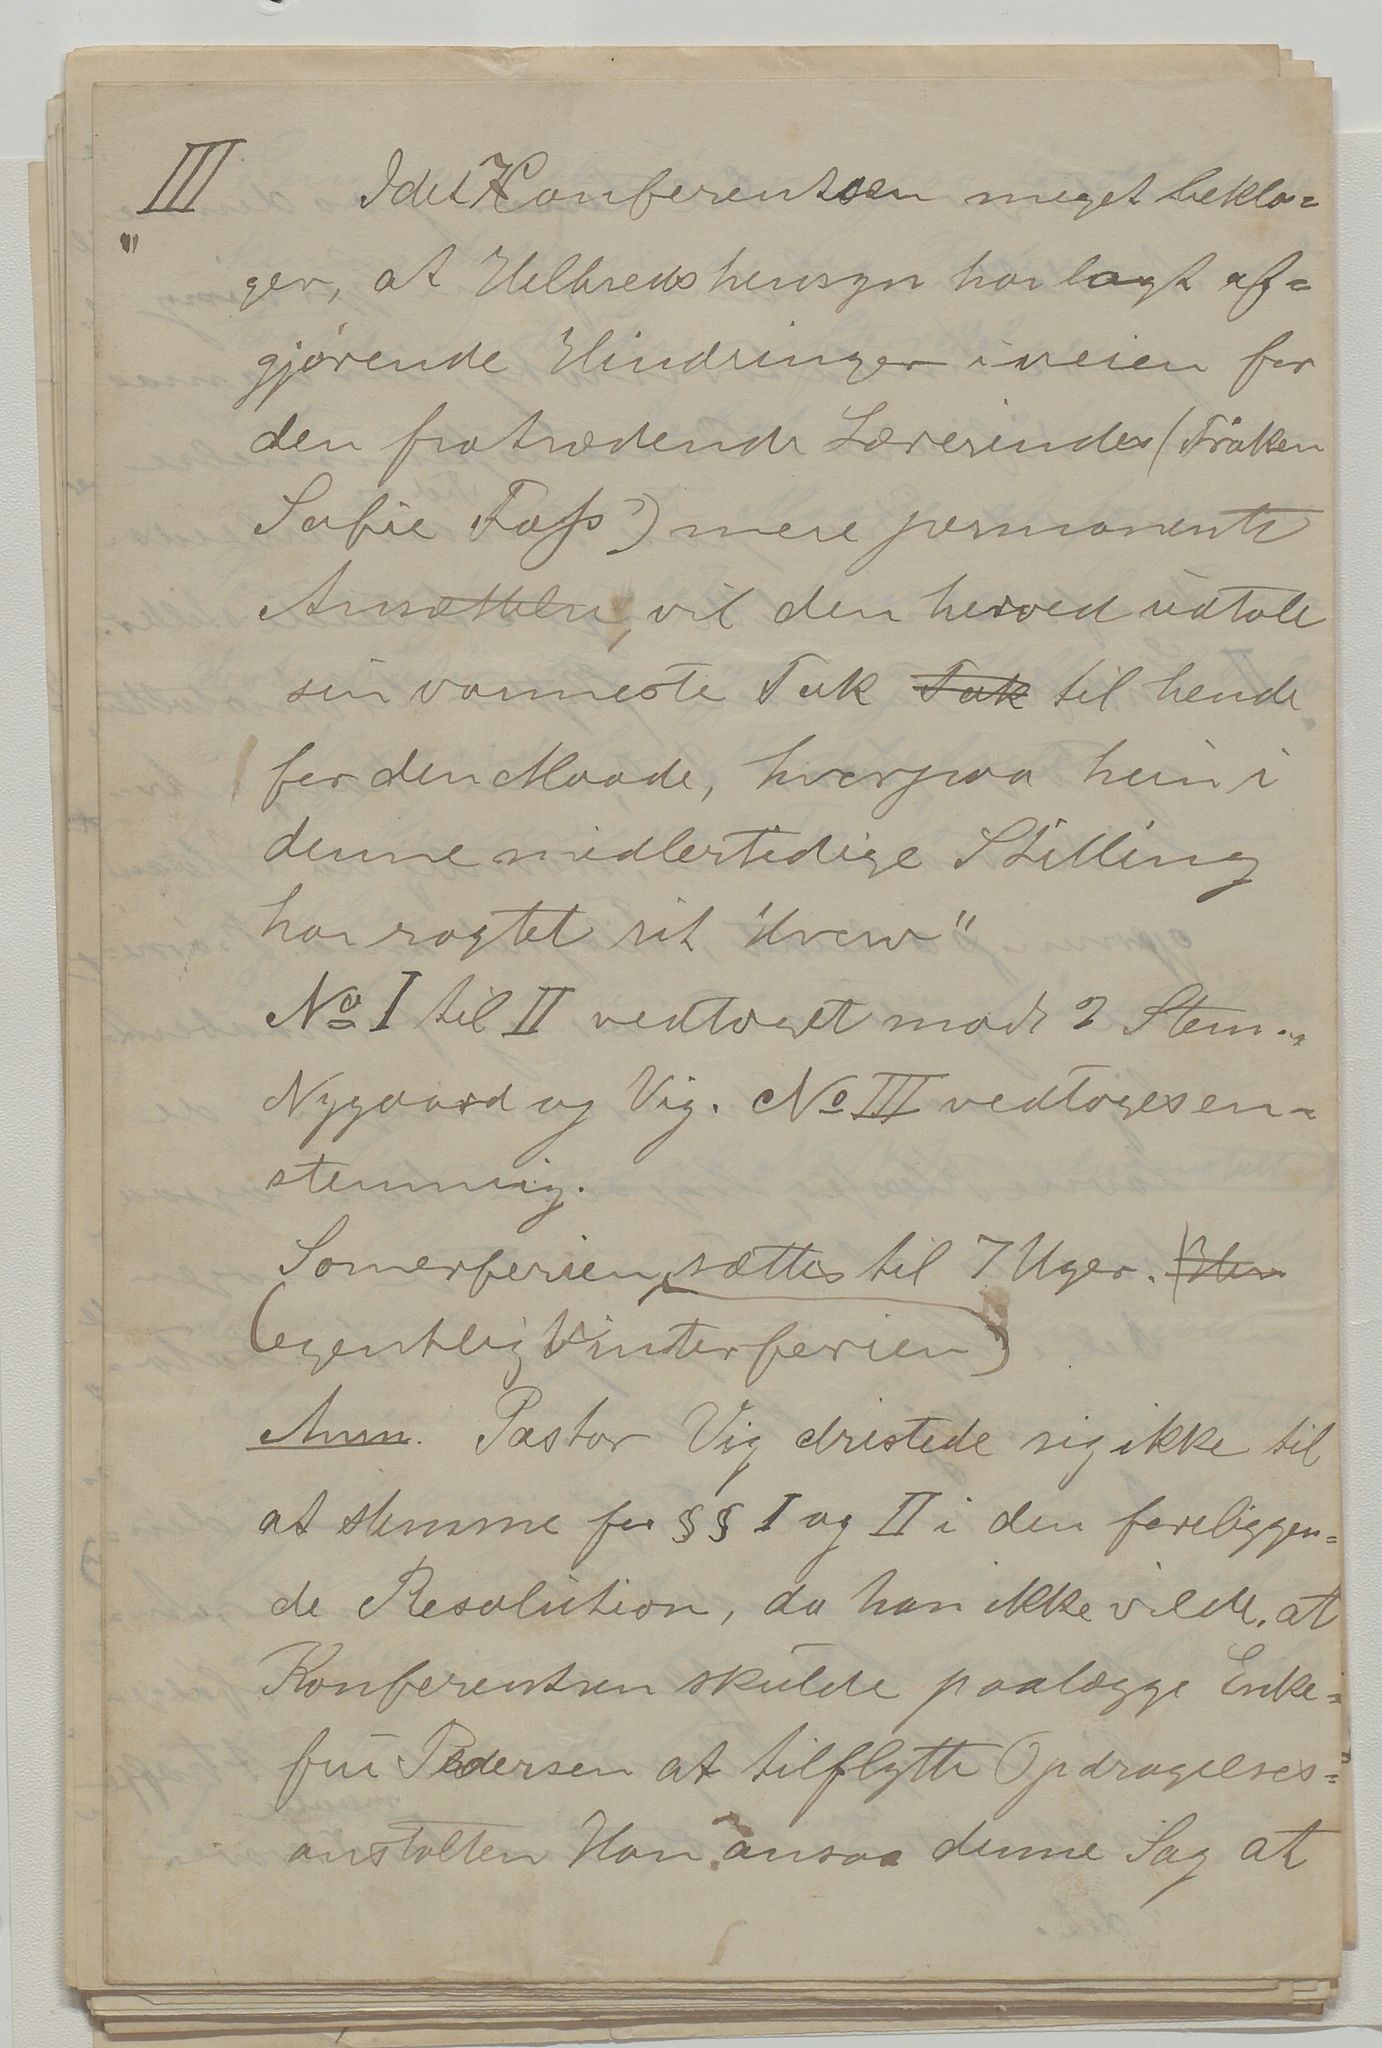 III Idet Konferentsen meget bekla=
" ger, at Helbredshensyn har lagt af=
gjørende Hindringer iveien for
den fratrædende Lærerindes (Frøken
Sofie Fass) mere permanente
Ansættelse, vil den herved udtale
sin varmeste Tak Tak til hende
for den Maade, hvorpaa hun i
denne midlertidige Stilling
har røgtet sit hverv"
No I til II vedtoget mod 2 Stem.
Nygaard og Vig. No III vedtoges en=
stemmig.
Somerferien, sættes til 7 Uger.
(egentlig Vinterferien)
Anm. Pastor Vig dristede sig ikke til
at stemme for §§ I og II i den foreliggen=
de Resolution, da han ikke vilde, at
Konferentsen skulde paalægge Enke=
fru Pedersen at tilflytte Opdragelses=
anstalten Han ansaa denne Sag at